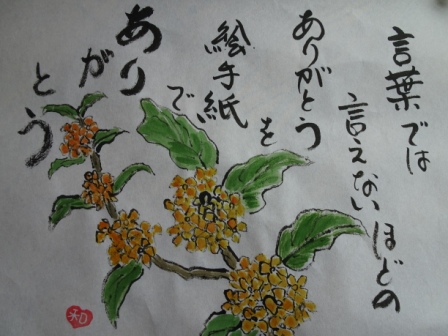 言葉では
言えないほどの
ありがとう
を
絵手紙
で
ありがとう
和